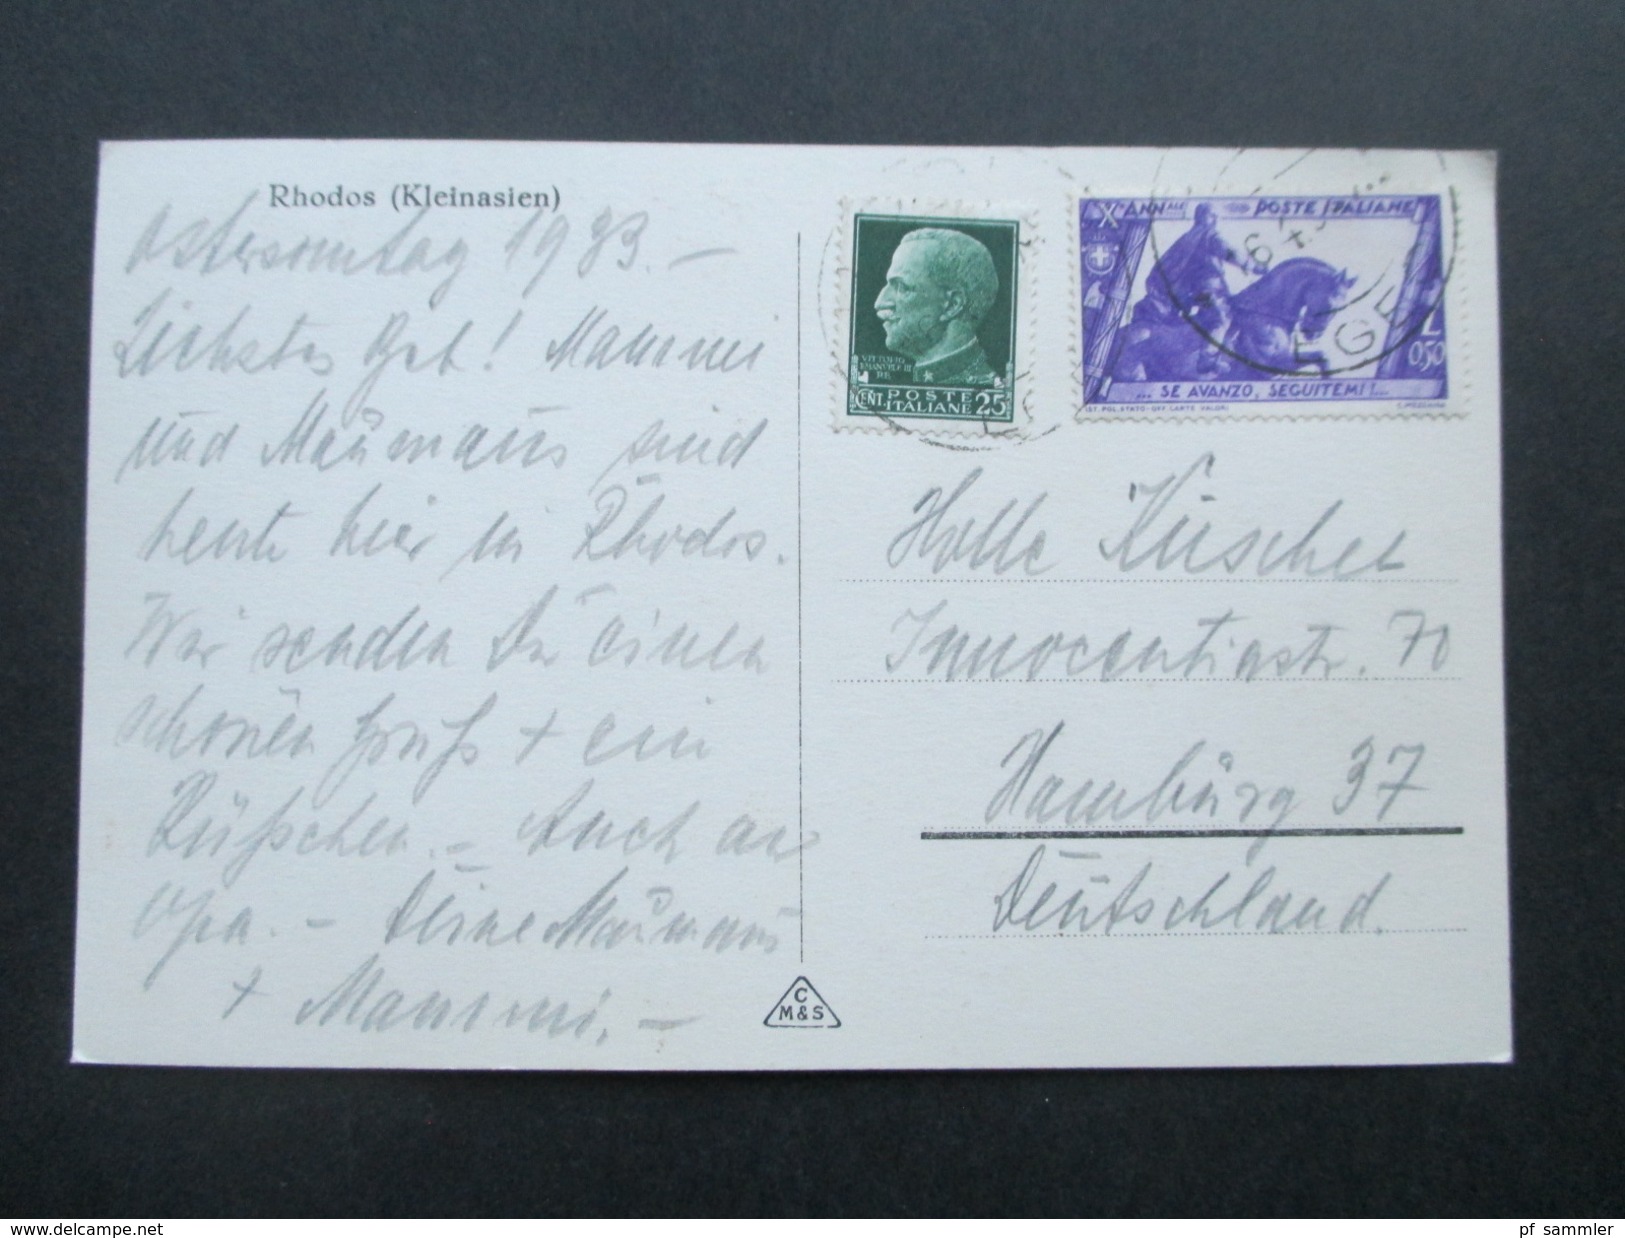 Rhodos (Kleinasien)
Ostersonntag 1933. –
Liebstes! Mammi
und Maümaüs sind
heute hier in Rhodos.
Wir senden Dir einen
schönen Gruß + ein
Küßchen. – Auch an
Opa. – Deine Maümaüs
+ Mammi. –
C
M&S
VITTORIO
EMANVELE III
RE
CENT. POSTE
ITALIANE 25
X° ANN.ALE POSTE ITALIANE
L
0,50
... SE AVANZO, SEGUITEMI!...
IST. POL. STATO - OFF. CARTE VALORI
Holle
Innocentiastr. 70
Hambürg 37
Deütschland.
delcampe.net
pf_sammler